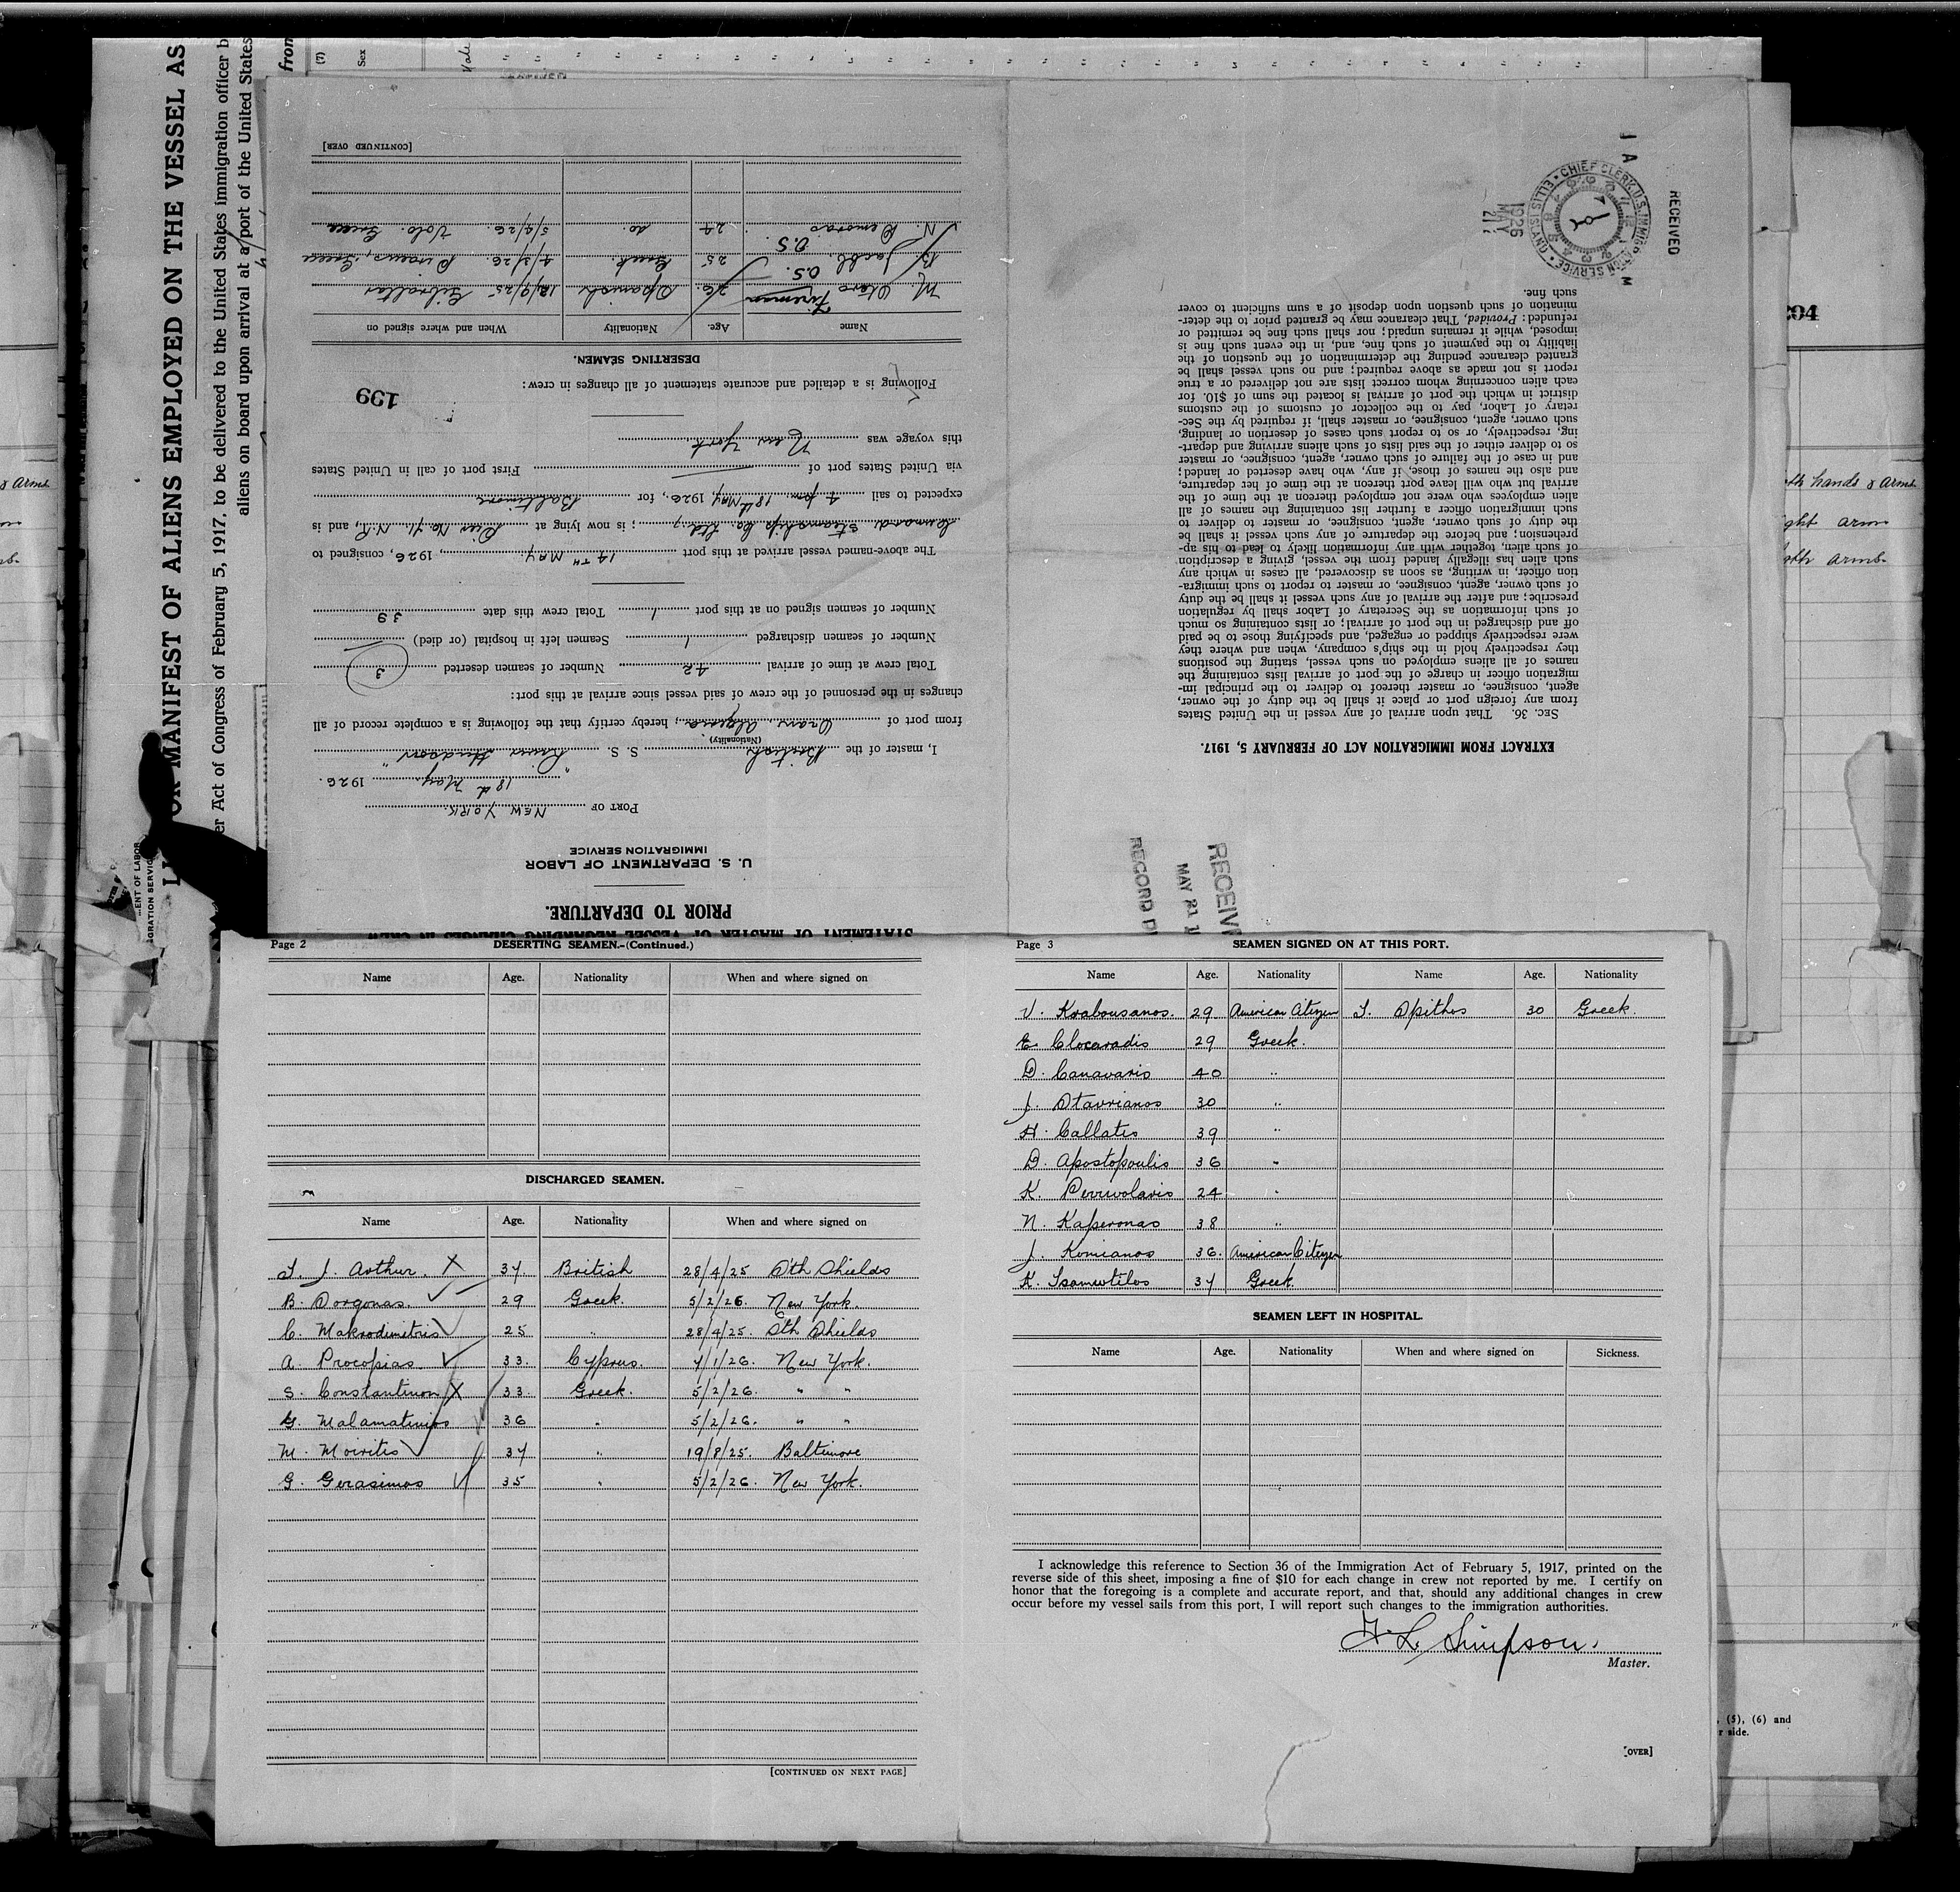 LI OR MANIFEST OF ALIENS EMPLOYED ON THE VESSEL AS
er Act of Congress of February 5, 1917, to be delivered to the United States immigration officer b
aliens on board upon arrival at a port of the United States
from
(7)
Sex
ENT OF LABOR
IGRATION SERVIC
STATEMENT OF MASTER OF VESSEL REGARDING CHANGES IN CREW
PRIOR TO DEPARTURE.
U. S. DEPARTMENT OF LABOR
IMMIGRATION SERVICE
PORT OF NEW YORK.
18th May 1926.
I, master of the British S. S. "River Hudson"
(Nationality)
from port of Oran Algeria, hereby certify that the following is a complete record of all
changes in the personnel of the crew of said vessel since arrival at this port:
Total crew at time of arrival 42 Number of seamen deserted 3
Number of seamen discharged 1 Seamen left in hospital (or died)
Number of seamen signed on at this port 1 Total crew this date 39
The above-named vessel arrived at this port 14TH MAY, 1926, consigned to
Cunard Steamship Co Ltd; is now lying at Pier No 71. N.R., and is
expected to sail 4 pm 18th May, 1926, for Baltimore
via United States port of First port of call in United States
this voyage was New York
Following is a detailed and accurate statement of all changes in crew:
199
DESERTING SEAMEN.
Name Age. Nationality When and where signed on
M. Otero Fireman 26 Spanish 12/9/25 Gibraltar
B. Jacobl O.S. 25 Greek 4/3/26. Piraeus, Greece
N. Demoras O.S. 24 do. 5/4/26. Volo. Greece
[CONTINUED OVER]
EXTRACT FROM IMMIGRATION ACT OF FEBRUARY 5, 1917.
SEC. 36. That upon arrival of any vessel in the United States
from any foreign port or place it shall be the duty of the owner,
agent, consignee, or master thereof to deliver to the principal im-
migration officer in charge of the port of arrival lists containing the
names of all aliens employed on such vessel, stating the positions
they respectively hold in the ship's company, when and where they
were respectively shipped or engaged, and specifying those to be paid
off and discharged in the port of arrival; or lists containing so much
of such information as the Secretary of Labor shall by regulation
prescribe; and after the arrival of any such vessel it shall be the duty
of such owner, agent, consignee, or master to report to such immigra-
tion officer, in writing, as soon as discovered, all cases in which any
such alien has illegally landed from the vessel, giving a description
of such alien, together with any information likely to lead to his ap-
prehension; and before the departure of any such vessel it shall be
the duty of such owner, agent, consignee, or master to deliver to
such immigration officer a further list containing the names of all
alien employees who were not employed thereon at the time of the
arrival but who will leave port thereon at the time of her departure,
and also the names of those, if any, who have deserted or landed;
and in case of the failure of such owner, agent, consignee, or master
so to deliver either of the said lists of such aliens arriving and depart-
ing, respectively, or so to report such cases of desertion or landing,
such owner, agent, consignee, or master shall, if required by the Sec-
retary of Labor, pay to the collector of customs of the customs
district in which the port of arrival is located the sum of $10. for
each alien concerning whom correct lists are not delivered or a true
report is not made as above required; and no such vessel shall be
granted clearance pending the determination of the question of the
liability to the payment of such fine, and, in the event such fine is
imposed, while it remains unpaid; nor shall such fine be remitted or
refunded: Provided, That clearance may be granted prior to the deter-
mination of such question upon deposit of a sum sufficient to cover
such fine.
RECEIVED
CHIEF CLERK, U.S. IMMIGRATION SERVICE
ELLIS ISLAND
1926 MAY 21
RECEIV
MAY 21 1
RECORD DI
Page 2 DESERTING SEAMEN.-(Continued.)
Name Age. Nationality When and where signed on
DISCHARGED SEAMEN.
Name Age. Nationality When and where signed on
T. J. Arthur. X 37. British 28/4/25 Sth Shields
B. Gorgonas. 29 Greek. 5/2/26. New York.
C. Makrodimitris 25 " 28/4/25. Sth Shields
A. Procopias. 33. Cyprus. 7/1/26. New York.
S. Constantinon X 33. Greek. 5/2/26. " "
G. Malamatinios 36 " 5/2/26. " "
M. Moiritis 37 " 19/8/25. Baltimore
G. Gerasimos 35 " 5/2/26. New York.
[CONTINUED ON NEXT PAGE]
Page 3 SEAMEN SIGNED ON AT THIS PORT.
Name Age. Nationality Name Age. Nationality
V. Krabousanos. 29 American Citizen S. Spithos 30 Greek.
E. Clocaradis 29 Greek.
D. Canavaris 40 "
J. Stavrianos 30 "
H. Callatis 39 "
D. Apostopoulis 36 "
K. Perivolaris 24 "
N. Kaperonas 38 "
J. Komianos 36. American Citizen
K. Tsamutilos 37 Greek.
SEAMEN LEFT IN HOSPITAL.
Name Age. Nationality When and where signed on Sickness.
I acknowledge this reference to Section 36 of the Immigration Act of February 5, 1917, printed on the
reverse side of this sheet, imposing a fine of $10 for each change in crew not reported by me. I certify on
honor that the foregoing is a complete and accurate report, and that, should any additional changes in crew
occur before my vessel sails from this port, I will report such changes to the immigration authorities.
H. L. Simpson.
Master.
[OVER]
204
both hands & arms
right arm
both arms
& arms
, (5), (6) and
r side.